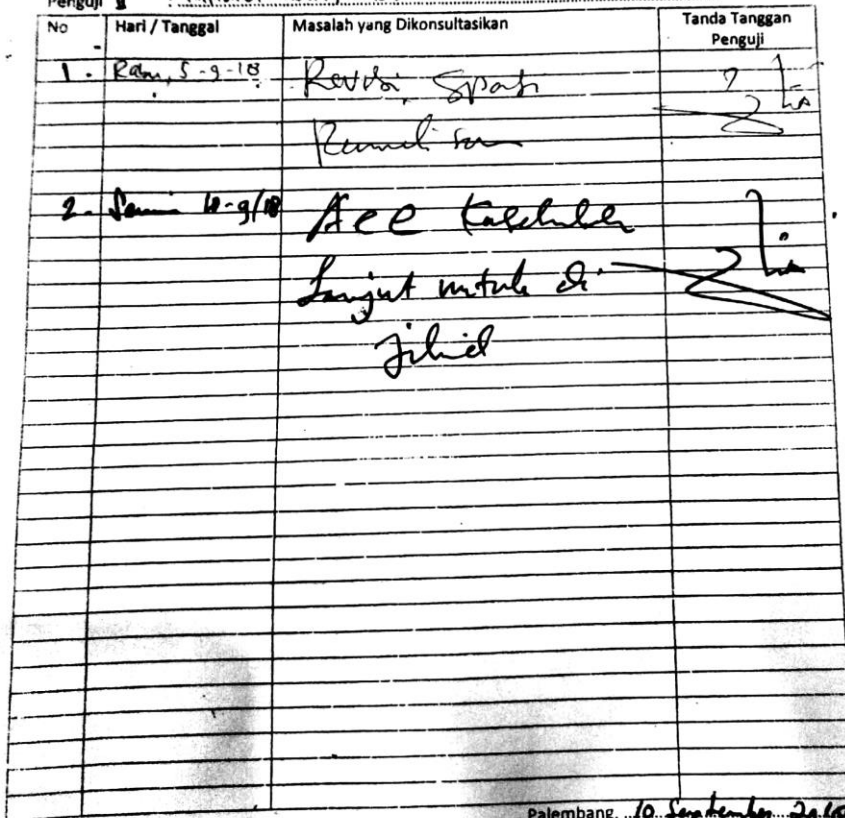 Penguji
No Hari / Tanggal Masalah yang Dikonsultasikan Tanda Tanggan Penguji
1. Rabu, 5-9-18 Revisi
2. Senin 10-9/18 Acc
Lanjut untuk di
jilid
Palembang, 10 September 2018